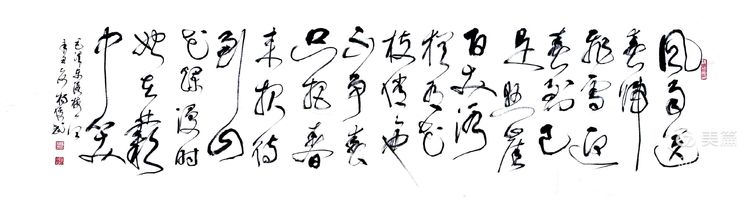 风雨送
春归
飞雪迎
春到已
是悬崖
百丈冰
犹有花
枝俏也
不争春
只把春
来报待
到山
花烂漫时
她在丛
中笑
毛泽东咏梅
美篇